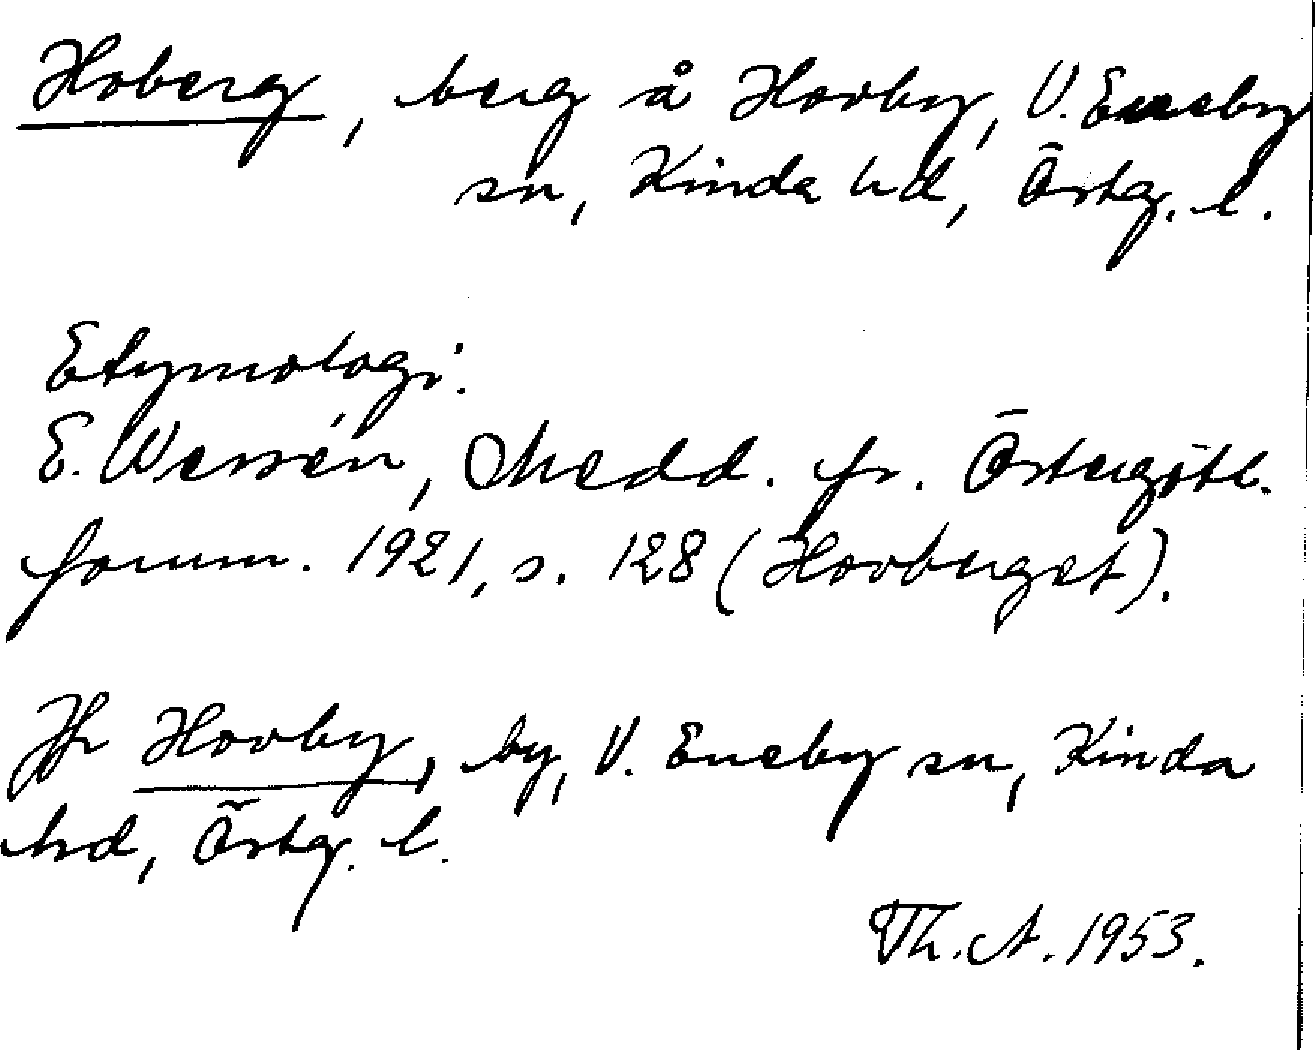 Hoberg, berg å Hovby, V. Eneby
sn, Kinda hd, Östg. l.
Etymologi:
E. Wessén, Medd. fr. Östergötl.
fornm. 1921, s. 128 (Hovberget).
Jfr Hovby, by, V. Eneby sn, Kinda
hd, Östg. l.
Th. A. 1953.